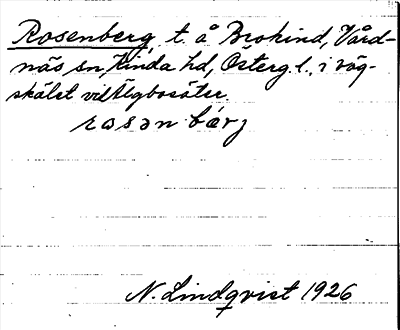 Rosenberg, t. å Brokind, Vård-
näs sn, Kinda hd, Österg. l., i väg-
skälet vid Ugbosäter.
rosanbärj
N. Lindqvist 1926